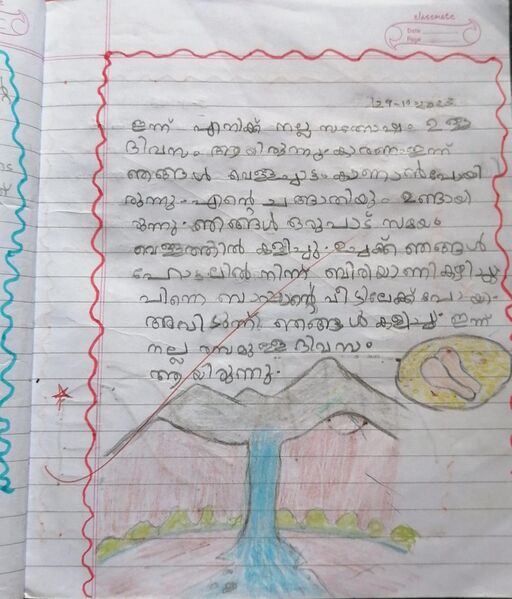 classmate
Date
Page
29-10-2023
ഇന്ന് എനിക്ക് നല്ല സന്തോഷം ഉള്ള
ദിവസം ആയിരുന്നു കാരണം ഇന്ന്
ഞങ്ങൾ വെള്ളച്ചാട്ടം കാണാൻ പോയി
രുന്നു. എന്റെ ചങ്ങാതിയും ഉണ്ടായി
രുന്നു. ഞങ്ങൾ ഒരുപാട് സമയം
വെള്ളത്തിൽ കളിച്ചു. ഉച്ചക്ക് ഞങ്ങൾ
ഹോട്ടലിൽ നിന്ന് ബിരിയാണി കഴിച്ചു
പിന്നെ പോയി.
അവിടുന്ന് ഞങ്ങൾ കളിച്ചു. ഇന്ന്
നല്ല ദിവസം
ആയിരുന്നു.